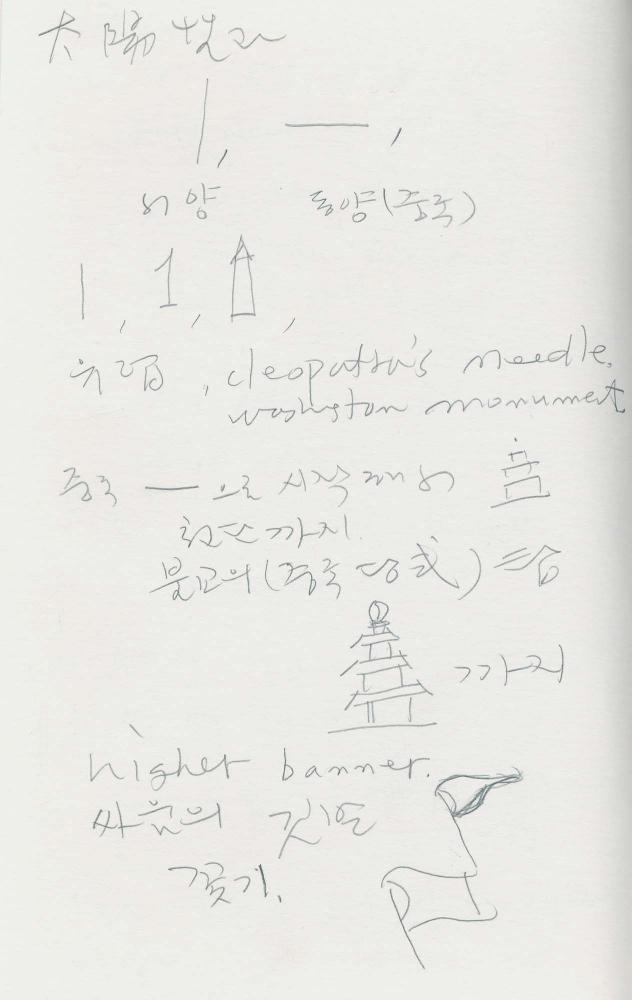 太陽
|, 一,
서양 동양(중국)
|, 1,
유럽, cleopatra's needle,
washgton monument
중국 一 으로 시작해서
천단까지.
불교의 (중국 당式) 탑
까지
higher banner.
싸움의 깃발
꽂기.